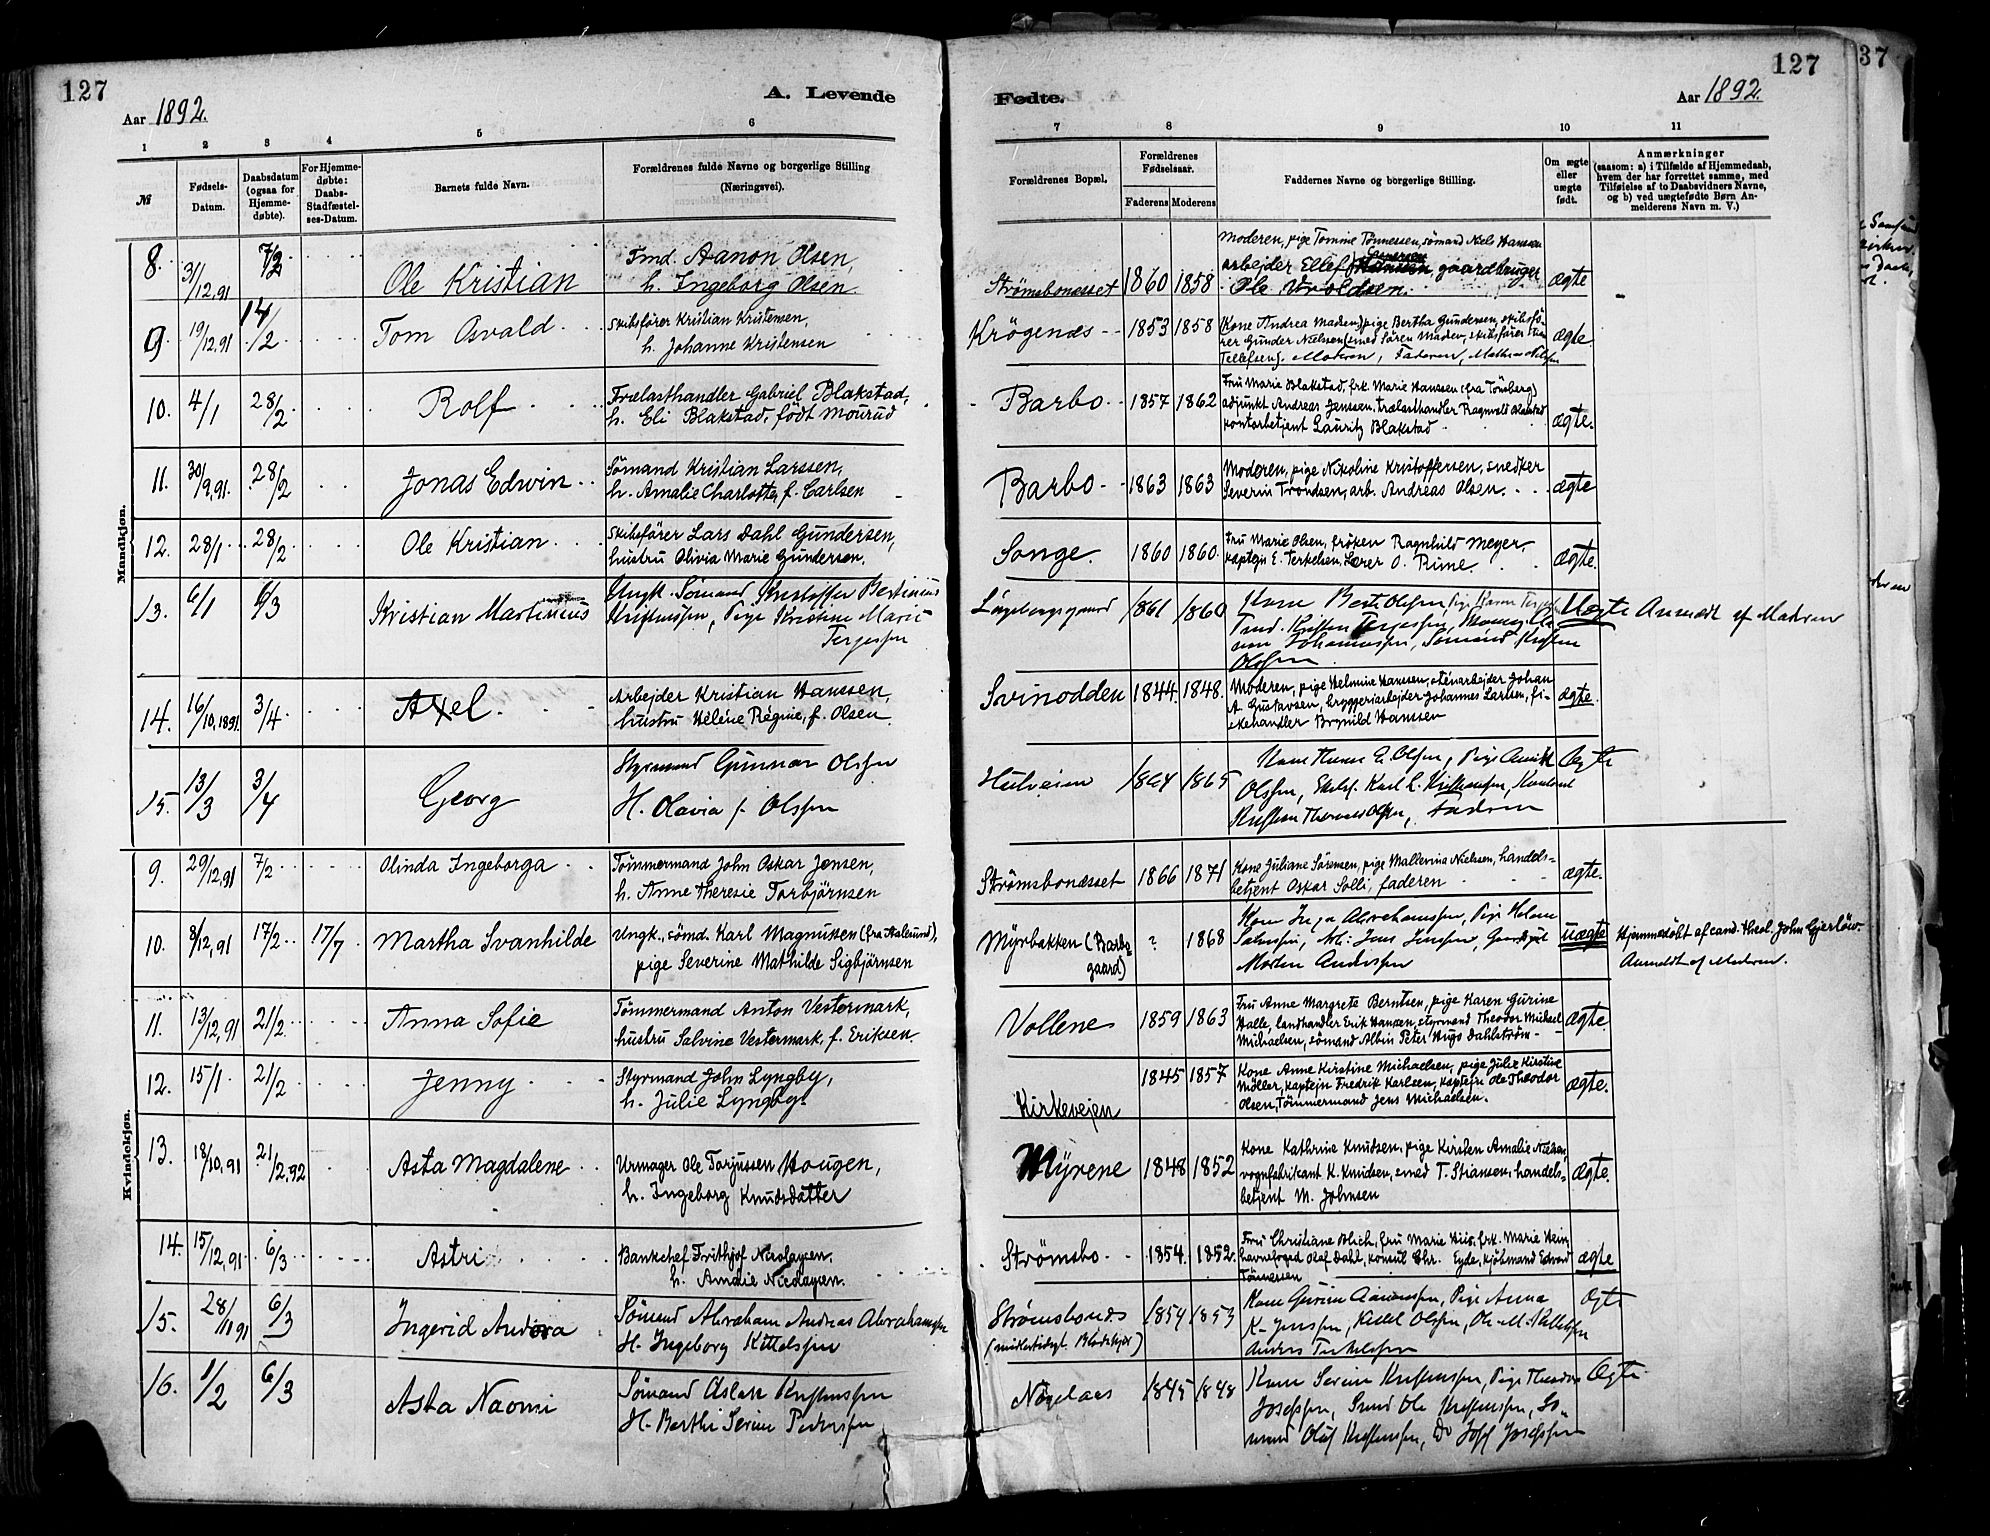 127
Aar 1892.
A. Levende
1 2 3 4 5 6
№
Fødsels-Datum.
Daabsdatum (ogsaa for Hjemmedøbte).
For Hjemmedøbte: Daabs-Stadfæstelses-Datum.
Barnets fulde Navn.
Forældrenes fulde Navne og borgerlige Stilling (Næringsvei).
Mandkjøn.
8. 31/12,91 7/2 Ole Kristian Tmd. Aanon Olsen,
h. Ingeborg Olsen
9. 19/12,91 14/2 Tom Osvald Skibsfører Kristian Kristensen,
h. Johanne Kristensen
10. 4/1 28/2 Rolf Trælasthandler Gabriel Blakstad,
h. Eli Blakstad, født Mourud
11. 30/9,91. 28/2 Jonas Edwin Sømand Kristian Larssen,
h. Amalie Charlotte, f. Carlsen
12. 28/1 28/2 Ole Kristian Skibsfører Lars Dahl Gundersen,
hustru Olivia Marie Gundersen.
13. 6/1 6/3 Kristian Martinius Ungk. Sømand Kristoffer Bertinius
Kristensen, Pige Kristine Marie
Terjesen
14. 16/10,1891. 3/4 Axel Arbejder Kristian Hanssen,
hustru Heléne Regine, f. Olsen
15. 13/3 3/4 Georg Styrmand Gunnar Olsen
H. Olavia f. Olssen
Kvindekjøn.
9. 29/12,91 7/2 Olinda Ingeborga Tömmermand John Oskar Jensen,
h. Anne Theresie Torbjörnsen
10. 8/12,91 17/2 17/7 Martha Svanhilde Ungk., sömd. Karl Magnussen (fra Aalesund),
pige Severine Mathilde Sigbjörnsen
11. 13/12,91 21/2 Anna Sofie Tömmermand Anton Vestermark,
hustru Salvine Vestermark, f. Eriksen.
12. 15/1 21/2 Jenny Styrmand John Lyngby,
h. Julie Lyngby.
13. 18/10,91 21/2,92 Asta Magdalene Urmager Ole Torjussen Hougen,
h. Ingeborg Knudsdatter
14. 15/12,91 6/3 Astri Bankchef Frithjof Nicolaysen,
h. Amalie Nicolaysen.
15. 28/11 91 6/3 Ingerid Andora Sömand Abraham Andreas Abrahamsen
H. Ingeborg Kittelsen
16. 1/2 6/3 Asta Naomi Sömand Aslak Kristensen
H. Berthe Serine Pedersen
127
Fødte.
Aar 1892.
7 8 9 10 11
Forældrenes Bopæl.
Forældrenes Fødselsaar.
Faderens Moderens
Faddernes Navne og borgerlige Stilling.
Om ægte eller uægte født.
Anmærkninger
(saasom: a) i Tilfælde af Hjemmedaab, hvem der har forrettet samme, med Tilføielse af to Daabsvidners Navne, og b) ved uægtefødte Børn Anmelderens Navn m. V.)
Strømsbonæsset 1860 1858 Moderen, pige Tomine Tønnessen, sømand Niels Hanssen
arbejder Ellef gaardbruger
Ole ægte
Krögenæs 1853 1858 Kone Andrea Madsen, pige Bertha Gundersen, skibsfö-
rer Gunder Nielsen, smed Sören Madsen, skibsförer
Tellefsen, Moderen, Faderen, ægte
Barbo 1857 1862 Fru Marie Blakstad, frk. Marie Hanssen (fra Tönsberg)
adjunkt Andreas Jenssen, trælasthandler Ragnvald Blakstad
kontorbetjent Lauritz Blakstad ægte.
Barbo 1863 1863 Moderen, pige Nikoline Kristoffersen, snedker
Severin Trondsen, arb. Andreas Olsen. ægte
Songe. 1860 1860 Fru Marie Olsen, fröken Ragnhild Meyer,
kaptejn E. Terkelsen, Lærer O. Rime. ægte.
1861 1860 Kone Berte Olsen, Pige Karen
Tmd. Kristen Terjesen,
Johannessen, Sömand Kristen
Olssen Uægte Anmeldt af Moderen
Svinodden 1844. 1848. Moderen, pige Helmine Hanssen, stenarbejder Johan
A. Gustavsen, bryggeriarbejder Johannes Larsen, fi-
skehandler Brynild Hanssen ægte.
1864 1865 Olssen, Pige
Olssen, Karl L. Kristensen,
Olsen, Faderen Ægte
Strømsbonæsset 1866 1871 Kone Juliane Sörensen, pige Mallerina Nielsen, handels-
betjent Oskar Solli, faderen ægte.
Myrbakken (Barbo
gaard) ? 1868 Kone Inga Abrahamsen, Pige Helene
Arb. Jens Jensen,
Morten Andersen uægte Hjemmedöbt af cand. theol. John Gjerlöw.
Anmeldt af Moderen.
Vollene 1859 1863 Fru Anne Margrete Berntsen, pige Karen Gurine
Halle, landhandler Erik Hansen, styrmand Theodor Michael
Michaelsen, sömand Albin Peter Hugo Dahlström ægte
Kirkevejen 1845 1857 Kone Anne Kirstine Michaelsen, pige Julie Kirstine
Möller, kaptejn Fredrik Karlsen, kaptejn Ole Theodor
Olsen, Tömmermand Jens Michaelsen. ægte.
Myrene 1848 1852 Kone Kathrine Knudsen, pige Kirsten Amalie Nielsen,
vognfabrikant K. Knudsen, smed T. Stiansen, handels-
betjent M. Johnsen ægte.
Strømsbo 1854. 1852. Fru Christiane Blich, fru Marie Hiis, frk. Marie Hein,
havnefoged Olaf Dahl, konsul Chr. Eyde, kjöbmand Edvard
Tönnessen ægte
Strömsbonæs 1854 1853 Kone Gurine Aanonsen, Pige Anna
K. Jenssen, Olssen,
Anders Terkelsen ægte
1845 1848 Kone Serine Kristensen, Pige
Josefsen, Smed Ole Kristensen, Sö-
mand Oluf Kristensen, Do Josef Josefsen Ægte
37